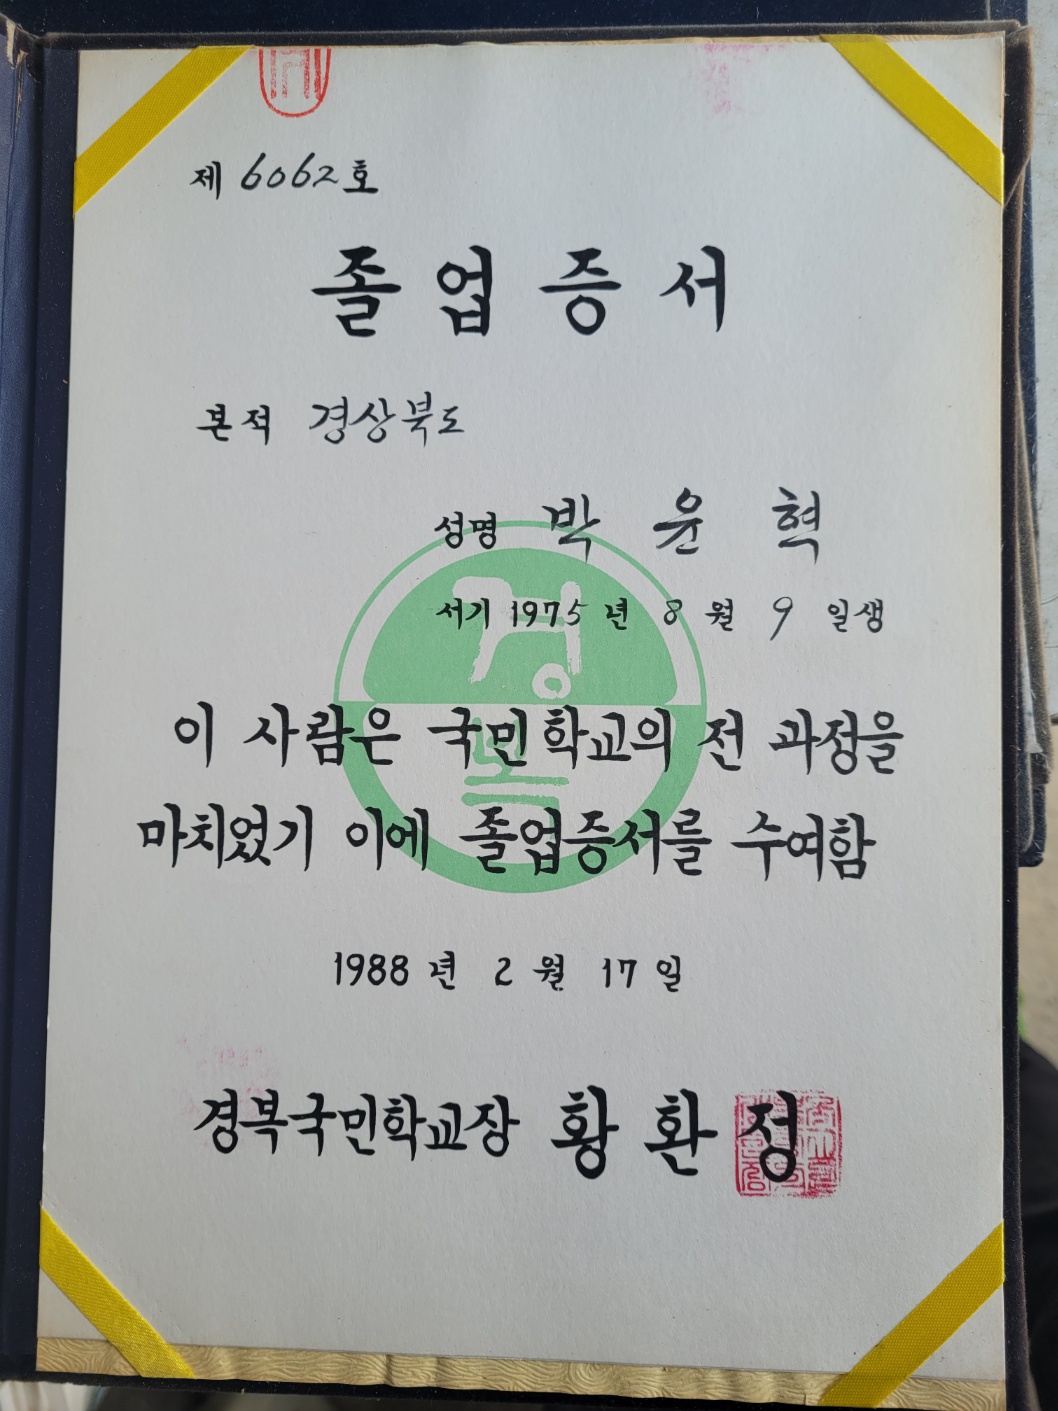 제 6062 호
졸업증서
본적 경상북도
성명 박윤혁
서기 1975 년 8 월 9 일생
경북
이 사람은 국민학교의 전 과정을
마치었기 이에 졸업증서를 수여함
1988 년 2 월 17 일
경북국민학교장 황환정